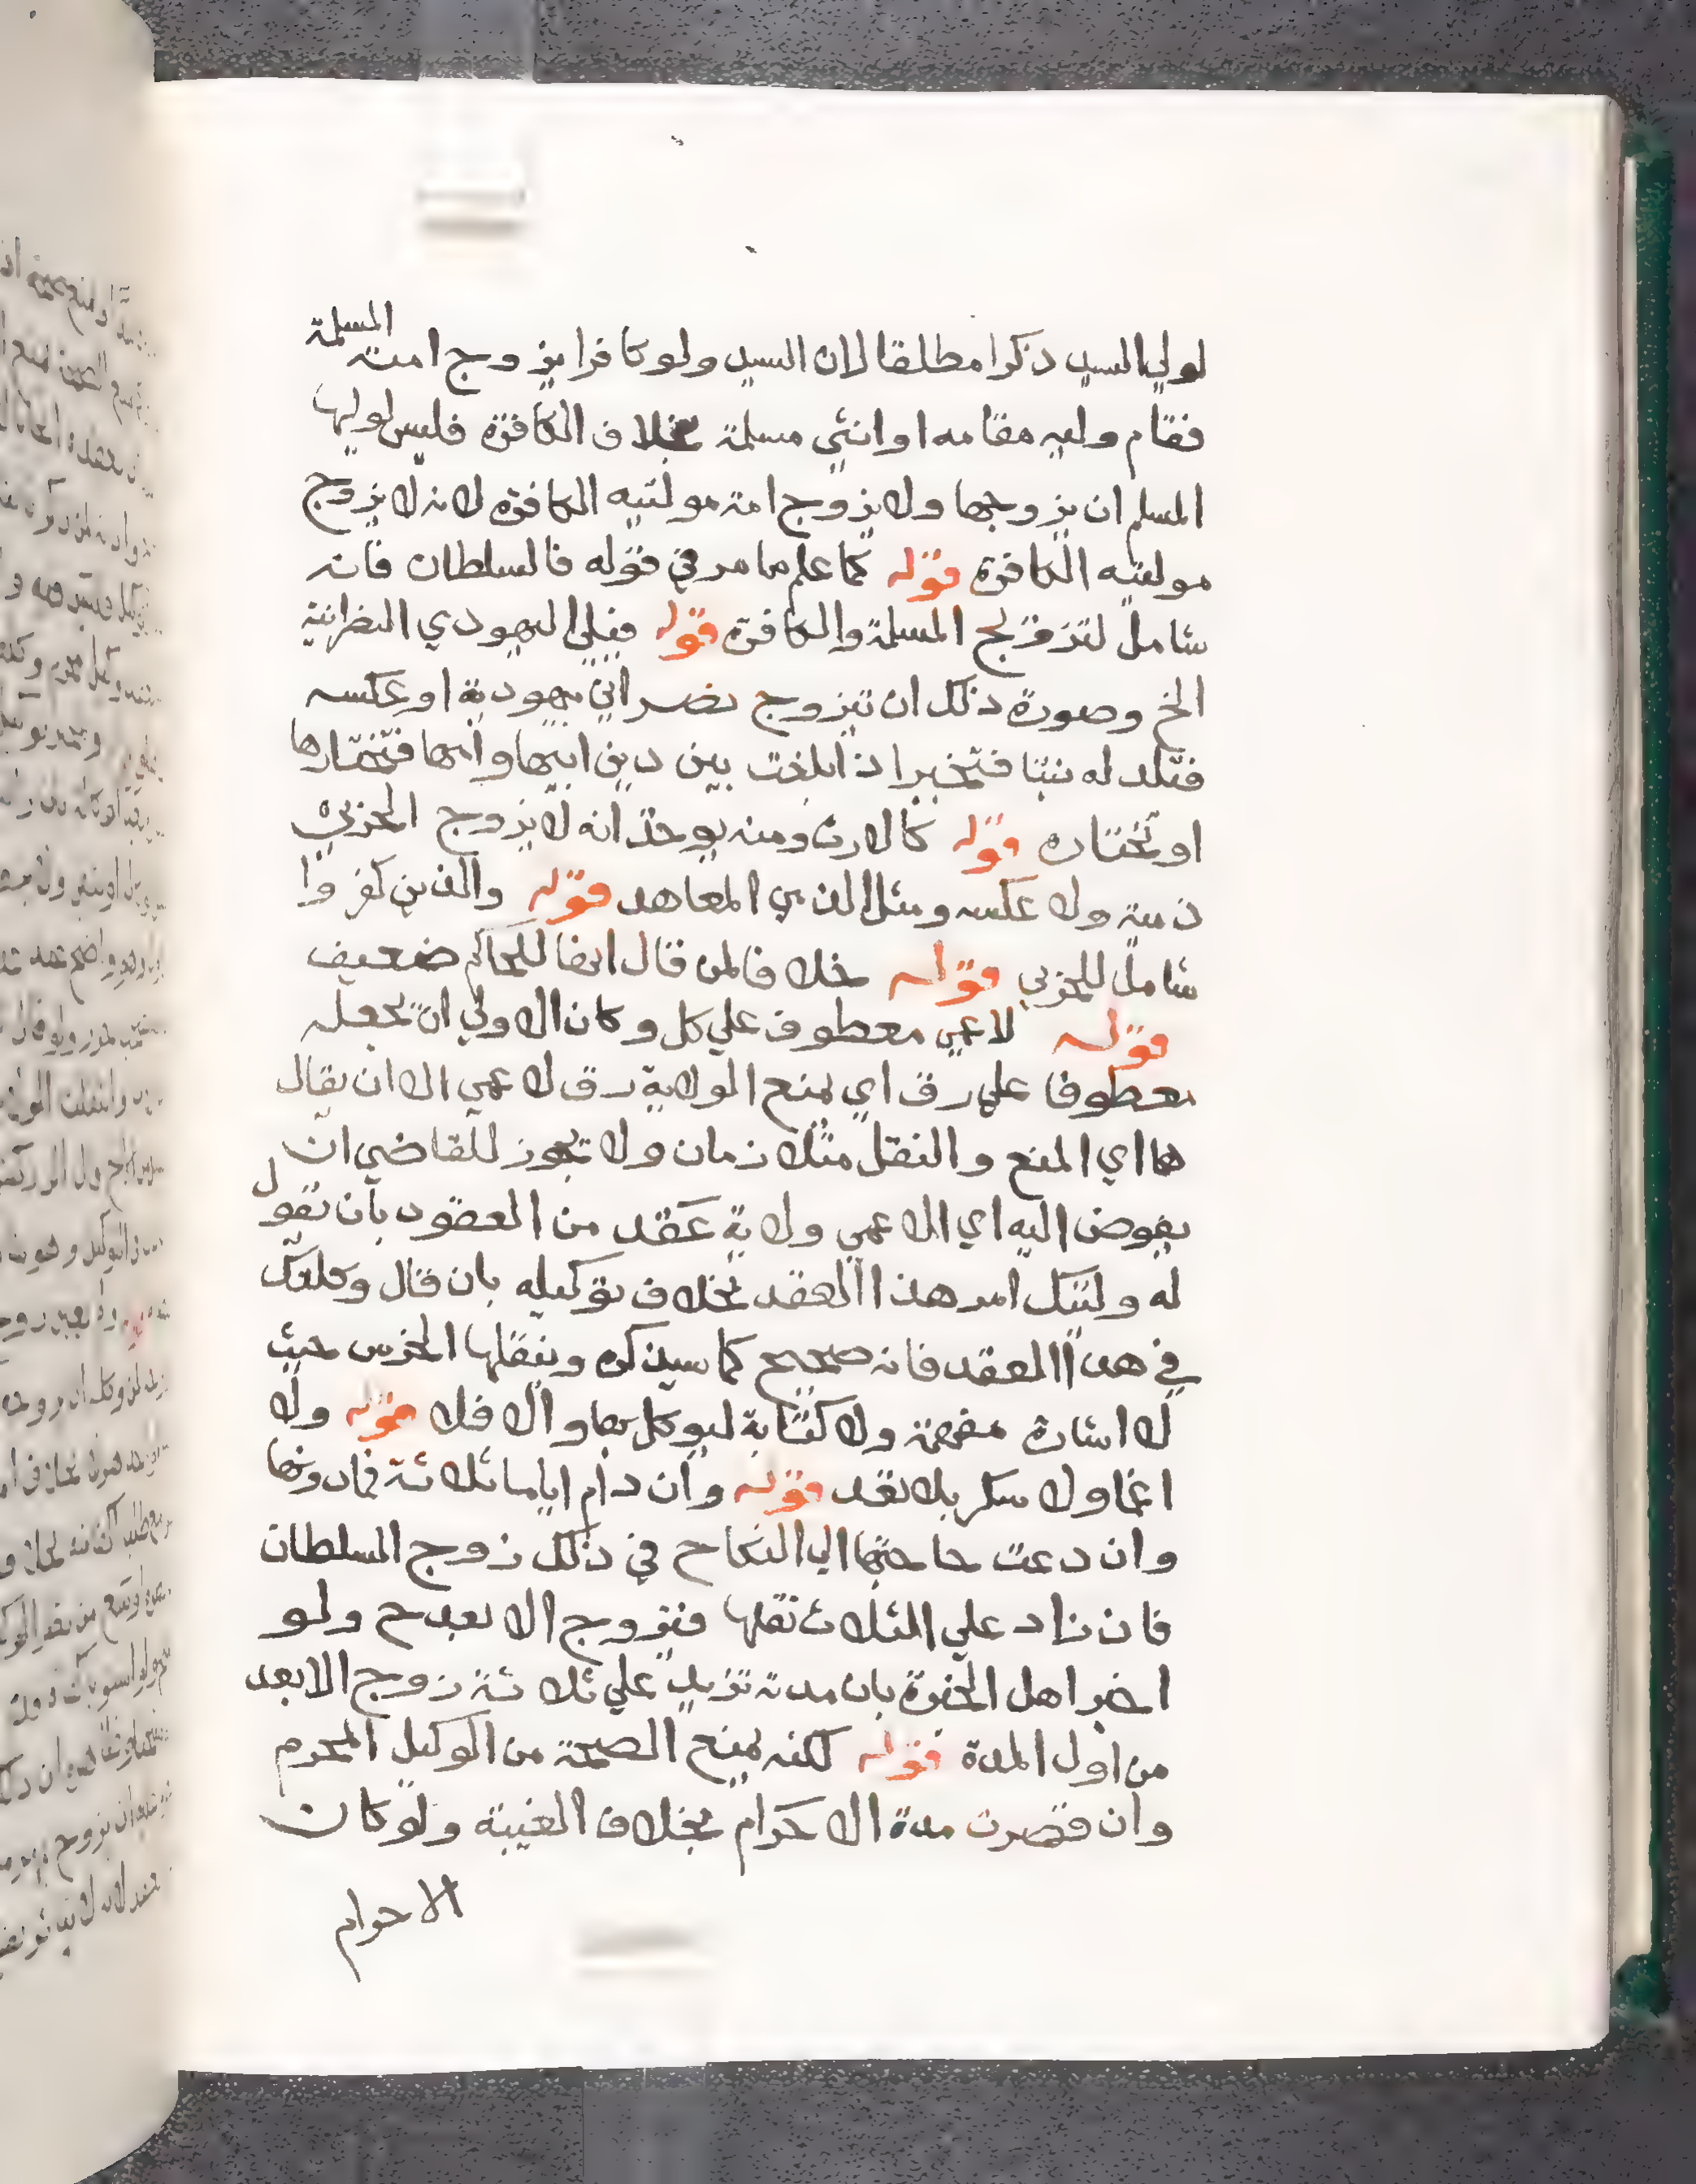 لولي السيد ذكرا مطلقا لان السيد ولو كافرا يزوج امته المسلمة
فقام وليه مقامه او انثي مسلمة بخلاف الكافرة فليس لوليها
المسلم ان يزوجها ولا يزوج امة موليته الكافرة لانه لا يزوج
موليته الكافرة قوله كما علم مما مر في قوله فالسلطان فانه
شامل لتزويج المسلمة والكافرة قوله فيلي اليهودي النصرانية
الخ وصورة ذلك ان يتزوج نصراني يهودية او عكسه
فتلد له بنتا فتخير اذا بلغت بين دين ابيها وامها فتختارها
او تختاره قوله كالارث ومنه يوخذ انه لا يزوج الحربي
ذمية ولا عكسه ومثل الذمي المعاهد قوله والذين كفروا
شامل للحربي قوله خلافا لمن قال انفا للحاكم ضعيف
قوله لا عمي معطوف علي كل وكان الاولي ان يجعله
معطوفا علي رق اي يمنع الولاية رق لا عمي الا ان يقال
هما اي المنع والنقل متلازمان ولا يجوز للقاضي ان
يفوض اليه اي الاعمي ولاية عقد من العقود بان يقول
له وليتك امر هذا العقد بخلاف توكيله بان قال وكلتك
في هذا العقد فانه صحيح كما سيذكره وينقلها الخرس حيث
لا اشارة مفهمة ولا كتابة ليوكل بها والا فلا قوله ولا
اغما ولا سكر بلا تعد قوله وان دام اياما ثلاثة فما دونها
وان دعت حاجتها الي النكاح في ذلك زوج السلطان
فان زاد علي الثلاث نقلها فيزوج الابعد ح ولو
اخبر اهل الخبرة بان مدته تزيد علي ثلاثة زوج الابعد
من اول المدة قوله لكنه يمنع الصحة من الوكيل المحرم
وان قصرت مدة الاحرام بخلاف الغيبة ولو كان
الاحرام